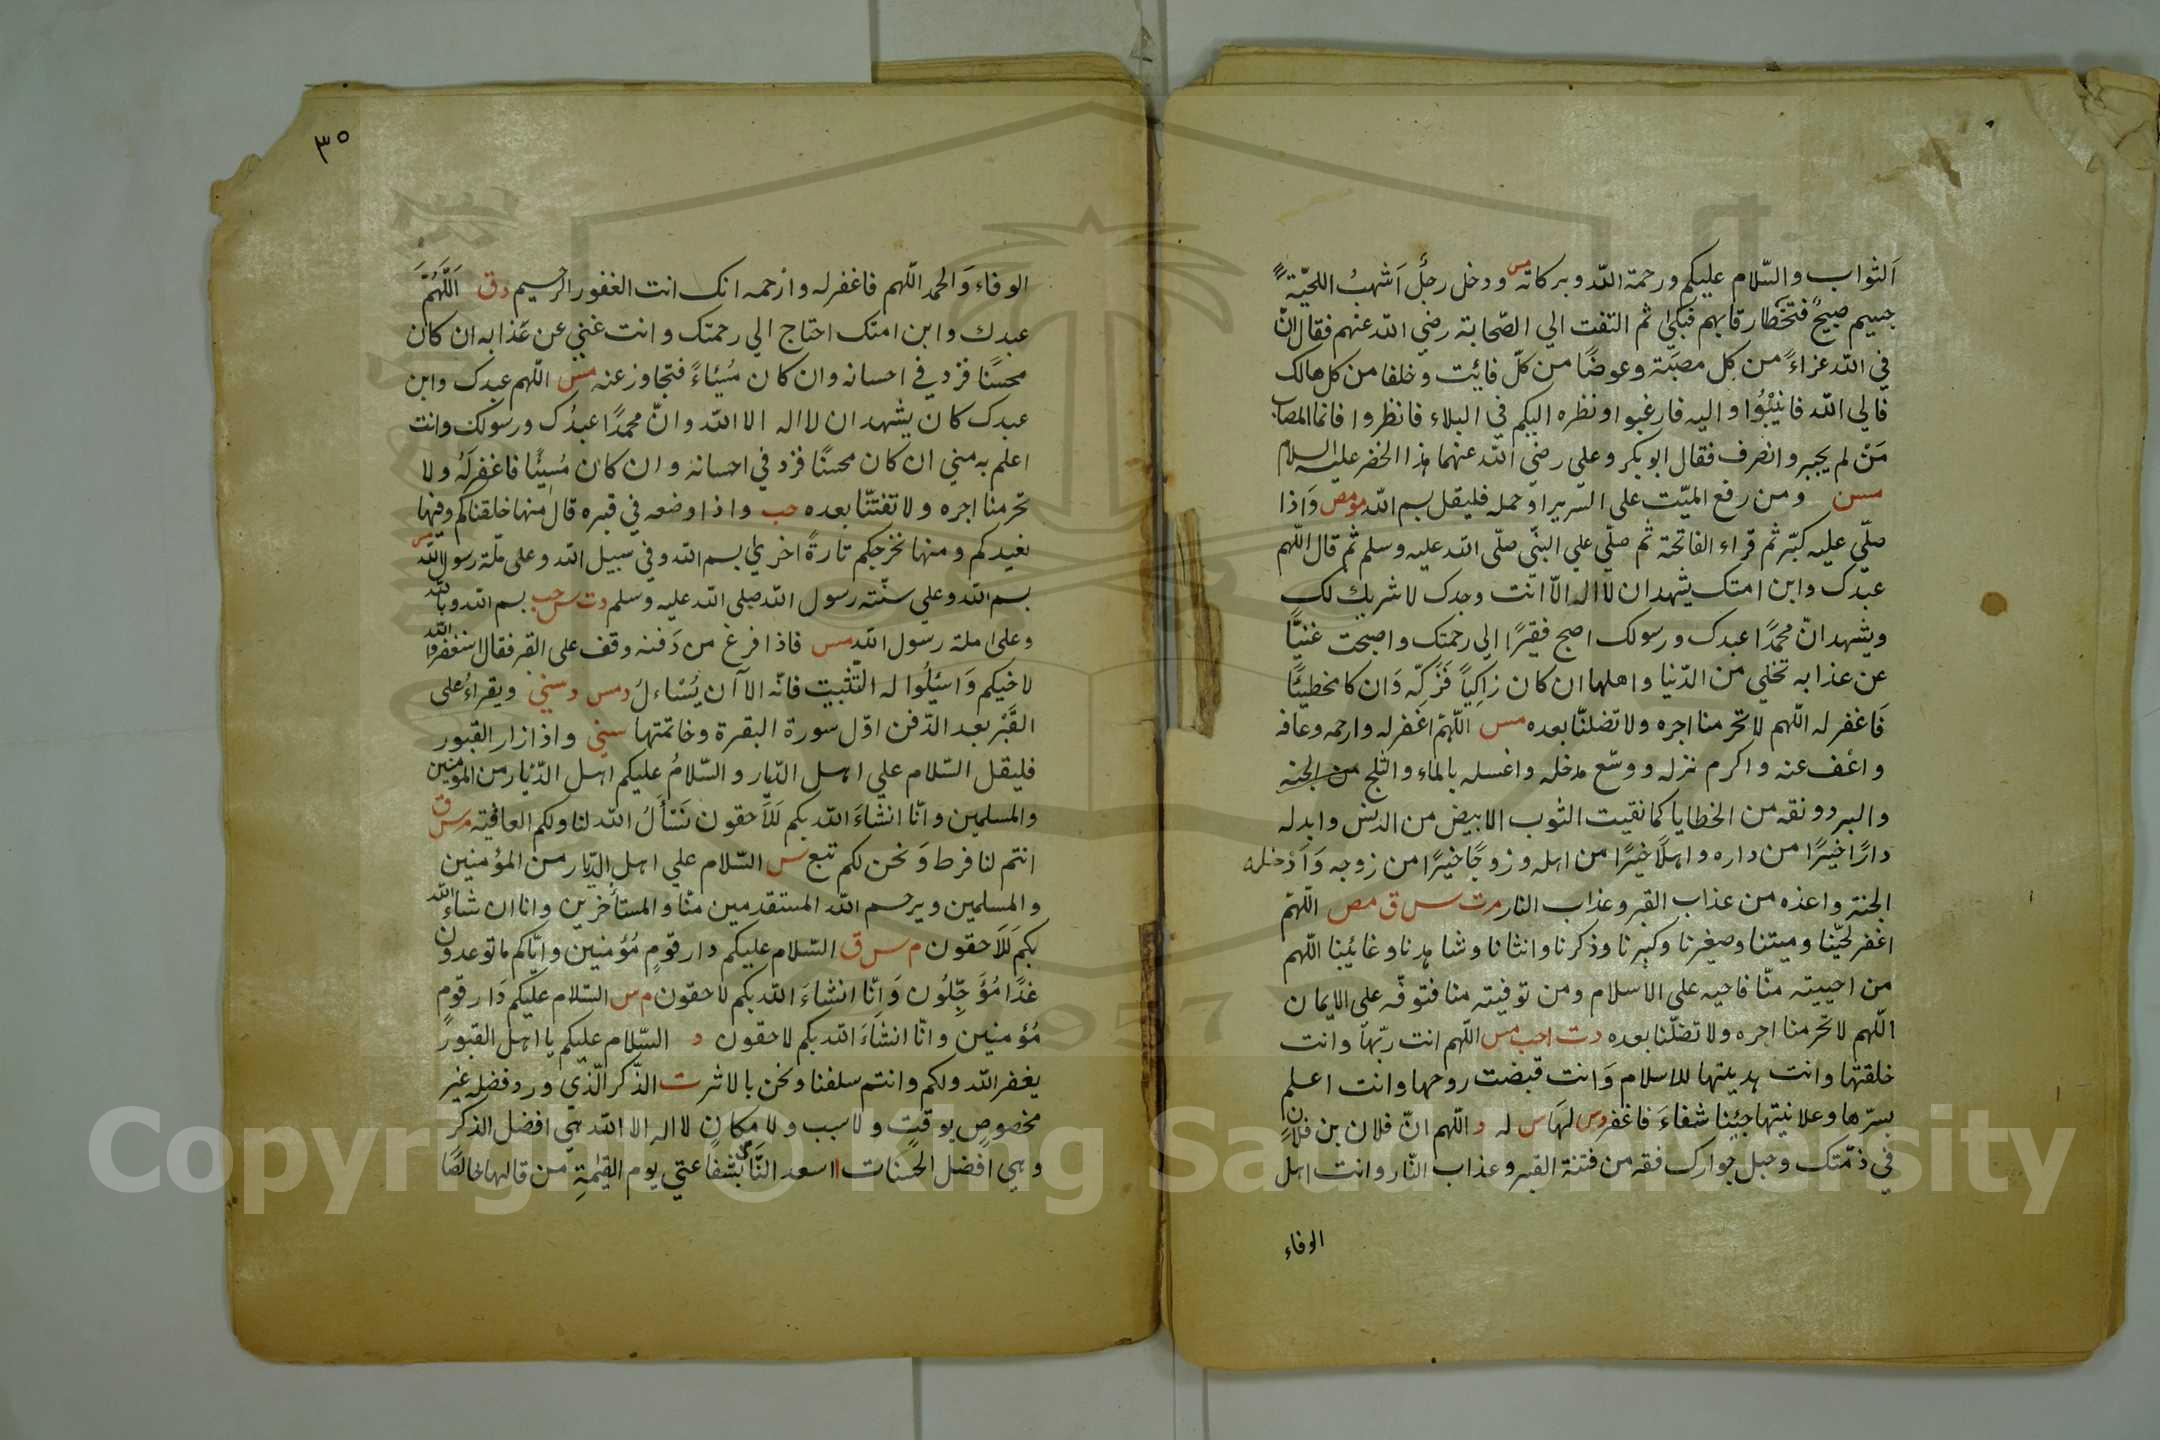 اَلثواب والسّلام عليكم ورحمة اللّه وبركاته مس ودخل رجلٌ اَشهبُ اللحيّة
جسيم صبيحٌ فتخطّا رقابهم فبكىٰ ثم التفت الي الصّحابة رضي اللّه عنهم فقال انّ
في اللّه عزاءً من كل مصيَبة وعوضًا من كلّ فايئت وخلفا من كل هالك
فالي اللّه فانيْبُوْا واليه فارغبوا ونظره اليكم في البلاء فانظروا فانما المصاب
مَنْ لم يجبر وانصرف فقال ابو بكر وعلي رضي اللّه عنهما هذا الخضر عليه السلام
مسن ومن رفع الميّت على السرير او حمله فليقل بسم اللّه مومص وَاذا
صلّي عليه كبّر ثم قراء الفاتحة ثم صلّي علي النبّي صلّى اللّه عليه وسلم ثم قال اللّهم
عبدك وابن امتك يشهد ان لا اله الاّ انت وحدك لا شريك لك
ويشهد انّ محمدًا عبدك ورسولك اصبح فقيرًا الي رحمتك واصبحت غنيًّا
عن عذابه تخلي من الدّنيا واهلها ان كان زاكِياً فَزَكِّه وَان كا مخطيئًا
فَاغفر له اللّهم لا تحرمنا اجره ولا تضلنّا بعده مس اللّهمّ اغفر له وارحمه وعافه
واعْف عنه واكرم نزله ووسّع مدخله واغسله بالماء والثلج من الجنه
والبرد ونقه من الخطايا كما نقيت الثوب الابيض من الدنس وابدله
دارًا خيرًا من داره واهلًا خيرًا من اهله وزوجًا خيرًا من زوجه وَاَدْخله
الجنة واعذه من عذاب القبر وعذاب النار مرت س ق مص اللّهمّ
اغفر لحيّنا وميتنا وصغيرنا وكبيرنا وذكرنا وانثانا وشاهدنا وغائبنا اللّهم
من احييته منّا فاحيه على الاسلام ومن توفيته منا فتوفّه على الايمان
اللّهم لا تحرمنا اجره ولا تضلّنا بعده دت احب مس اللّهم انت ربّها وانت
خلقتها وانت هديتها للاسلام وَانت قبضت روحها وانت اعلم
بسرّها وعلانيتها جيئنا شفاءَ فاغفر دس لهَا س له د اللّهم انّ فلان بن فلانٍ
في ذمّتك وحبل جوارك فقه من فتنة القبر وعذاب النّار وانت اهل
الوفاء
٣٥
الوفاءَ وَالحمد اللّهم فاغفر له وارْحمه انك انت الغفور الرحيم دق اَللَّهُمَّ
عبدك وابن امتك احتاج الي رحمتك وانت غني عن عَذابه ان كان
محسنًا فزد في احسانه وان كان مُسُيئاءً فتجاوز عنه مس اللّهم عبدك وابن
عبدك كان يشهد ان لا اله الا اللّه وانّ محمدًا عبدُك ورسولك وانت
اعلم به مني ان كان محسنًا فزد في احسانه وان كان مُسِيئًا فاغفر لَهُ ولا
تحرمنا اجره ولا تفتنّا بعده حب واذا وضعه في قبره قال منها خلقناكم وفيها
نعيدكم ومنها نخرجكم تارةً اخرىٰ بسم اللّه وفي سبيل اللّه وعلى ملّة رسول اللّه مس
بسم اللّه وعلي سنّته رسول اللّه صلى اللّه عليه وسلم دت س حب بسم اللّه وباللّه
وعلىٰ ملة رسول اللّه مس فاذا فرغ من دَفنه وقف على القبر فقال استغفروا اللّه
لاخيكم وَاسئلُوا له التّثبيت فانّه الآ ان يُسْاءلُ دمس دسني ويقراءُ على
القَبْر بعد الدّفن اوّل سورة البقرة وخاتمتها سني واذا زار القبور
فليقل السّلام علي اهل الدّيار والسّلامُ عليكم اهل الدّيار من المؤمنين
والمسلمين وانّا انشاءَ اللّه بكم لَلاَحقون نَسْأَلُ اللّه لنا ولكم العافيته مس ق
انتم لنا فرط وَنحن لكم تبع س السّلام علي اهل الدّيار من المؤمنين
والمسلمين ويرحم اللّه المستقدمين منّا والمستأخرين وانا ان شاءَ اللّه
بكم لَلاَحقون م س ق السّلام عليكم دار قومٍ مُؤمنين وايّاكم ما توعدون
غدًا مُؤَجِّلُون وَانّا انشاءَ اللّه بكم لاحقون م س السّلام عليكم دَار قومٍ
مُؤمنين وانّا انشاءَ اللّه بكم لاحقون د السّلام عليكم يا اهل القبور
يغفر اللّه ولكم وانتم سلفنا ونحن بالاثر ت الذّكر الّذي ورد فضله غير
مخصوصٍ بوقتٍ ولا سبب ولا مكانٍ لا اله الا اللّه هي افضل الذكر
وهي افضل الحسنات ا اسعد النّاس بشفاعتي يوم القيٰمةِ من قالها خالصًا
Copyright © King Saud University
1957